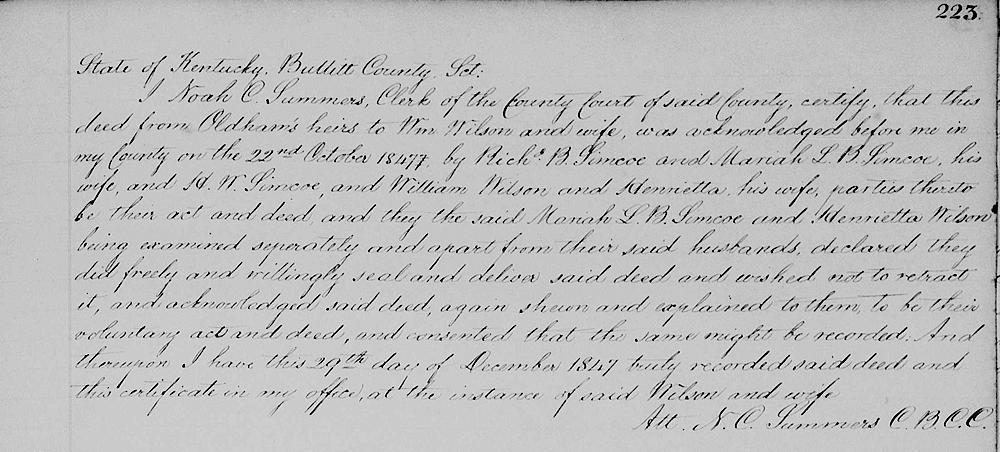 223.
State of Kentucky, Bullitt County, Sct:
I Noah C. Summers, Clerk of the County Court of said County, certify, that this
deed from Oldham's heirs to Wm Wilson and wife, was acknowledged before me in
my County on the 22nd October 1847, by Richd. B. Simcoe and Mariah L. B. Simcoe, his
wife, and H. W. Simcoe, and William Wilson and Henrietta, his wife, parties thereto
to be their act and deed, and they the said Mariah L. B. Simcoe and Henrietta Wilson
being examined seperately and apart from their said husbands, declared they
did freely and willingly seal and deliver said deed and wished not to retract
it, and acknowledged said deed, again shewn and explained to them, to be their
voluntary act and deed, and consented that the same might be recorded. And
thereupon I have this 29th day of December 1847 truly recorded said deed and
this certificate in my office, at the instance of said Wilson and wife
Att. N. C. Summers C. B. C. C.